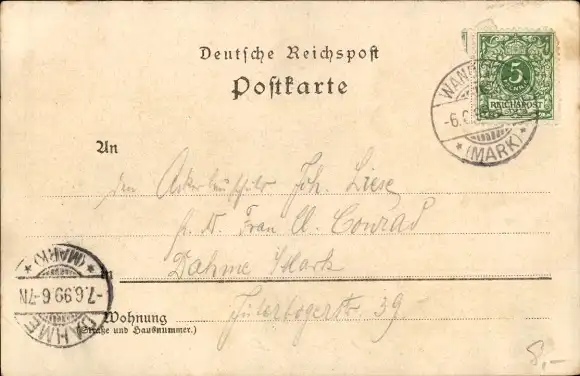 Deutsche Reichspost
Postkarte
5
REICHSPOST
WAN
-6.
* (MARK) *
An
den Joh. Liese
Frau A. Conrad
Dahme /Mark
in
Jüterbogerstr 39
Wohnung
(Straße und Hausnummer.)
DAHME
-7.6.99 6-7N
* (MARK) *
8,-